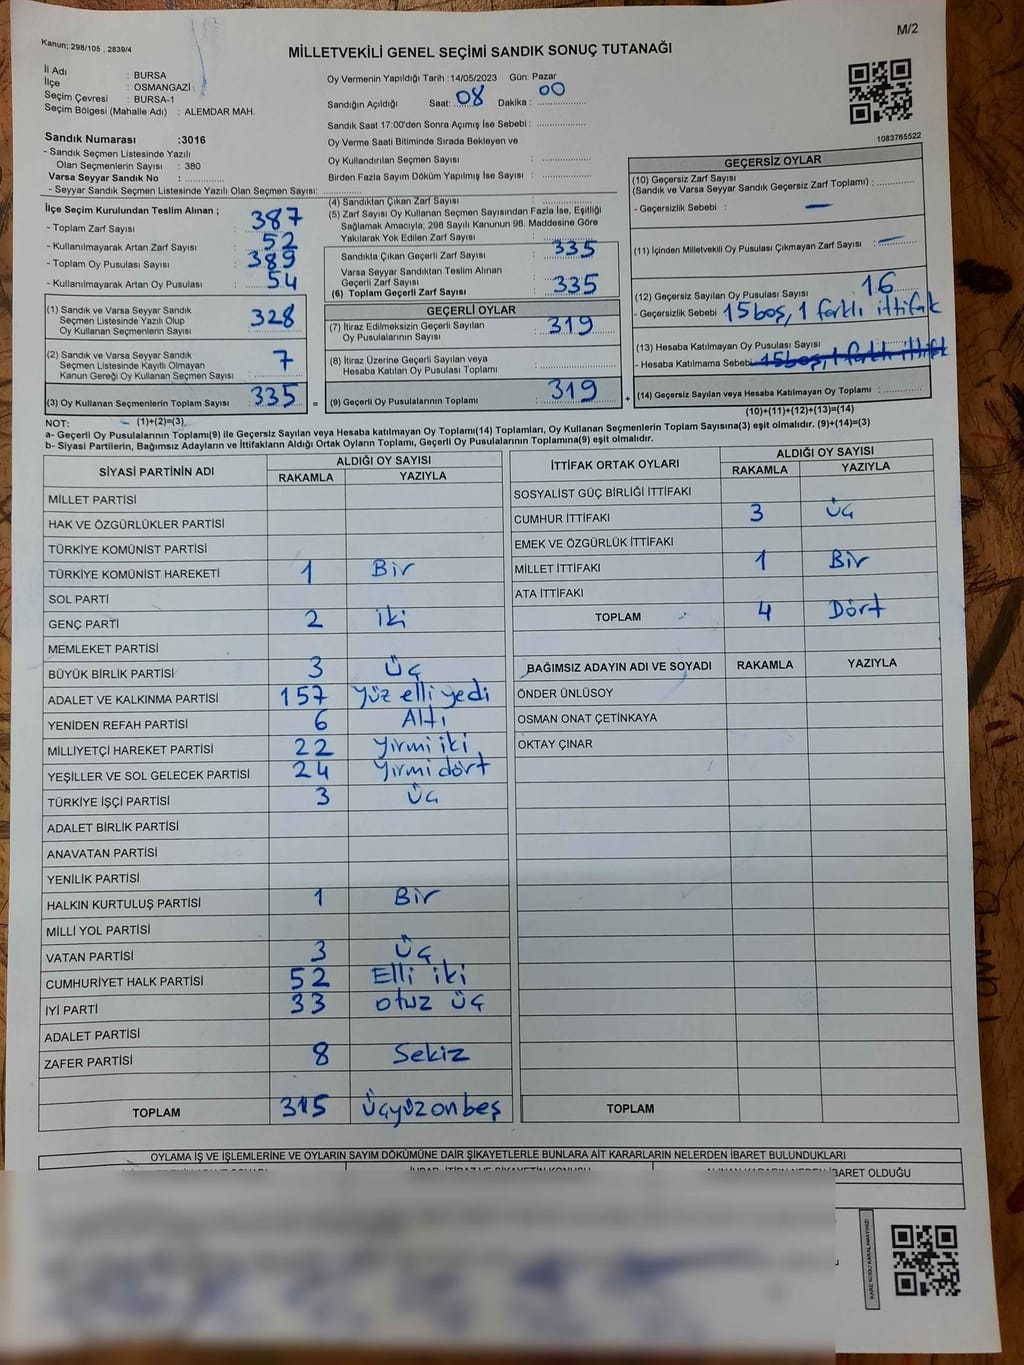 M/2
Kanun; 298/105 , 2839/4
MİLLETVEKİLİ GENEL SEÇİMİ SANDIK SONUÇ TUTANAĞI
İl Adı : BURSA
İlçe : OSMANGAZİ
Seçim Çevresi : BURSA-1
Seçim Bölgesi (Mahalle Adı) : ALEMDAR MAH.
Oy Vermenin Yapıldığı Tarih :14/05/2023 Gün: Pazar
Sandığın Açıldığı Saat: 08 Dakika : 00
Sandık Saat 17:00'den Sonra Açımış İse Sebebi :
Oy Verme Saati Bitiminde Sırada Bekleyen ve
Oy Kullandırılan Seçmen Sayısı :
Birden Fazla Sayım Döküm Yapılmış İse Sayısı :
1083765522
Sandık Numarası :3016
- Sandık Seçmen Listesinde Yazılı
Olan Seçmenlerin Sayısı : 380
Varsa Seyyar Sandık No :
- Seyyar Sandık Seçmen Listesinde Yazılı Olan Seçmen Sayısı:
İlçe Seçim Kurulundan Teslim Alınan ;
- Toplam Zarf Sayısı : 387
- Kullanılmayarak Artan Zarf Sayısı : 52
- Toplam Oy Pusulası Sayısı : 389
- Kullanılmayarak Artan Oy Pusulası : 54
(1) Sandık ve Varsa Seyyar Sandık
Seçmen Listesinde Yazılı Olup
Oy Kullanan Seçmenlerin Sayısı : 328
(2) Sandık ve Varsa Seyyar Sandık
Seçmen Listesinde Kayıtlı Olmayan
Kanun Gereği Oy Kullanan Seçmen Sayısı : 7
(3) Oy Kullanan Seçmenlerin Toplam Sayısı : 335
(1)+(2)=(3)
(4) Sandıktan Çıkan Zarf Sayısı :
(5) Zarf Sayısı Oy Kullanan Seçmen Sayısından Fazla İse, Eşitliği
Sağlamak Amacıyla; 298 Sayılı Kanunun 98. Maddesine Göre
Yakılarak Yok Edilen Zarf Sayısı :
Sandıkta Çıkan Geçerli Zarf Sayısı : 335
Varsa Seyyar Sandıktan Teslim Alınan
Geçerli Zarf Sayısı
(6) Toplam Geçerli Zarf Sayısı : 335
GEÇERLİ OYLAR
(7) İtiraz Edilmeksizin Geçerli Sayılan
Oy Pusulalarının Sayısı : 319
(8) İtiraz Üzerine Geçerli Sayılan veya
Hesaba Katılan Oy Pusulası Toplamı :
= (9) Geçerli Oy Pusulalarının Toplamı : 319 +
GEÇERSİZ OYLAR
(10) Geçersiz Zarf Sayısı
(Sandık ve Varsa Seyyar Sandık Geçersiz Zarf Toplamı) :
- Geçersizlik Sebebi : —
(11) İçinden Milletvekili Oy Pusulası Çıkmayan Zarf Sayısı : —
(12) Geçersiz Sayılan Oy Pusulası Sayısı : 16
- Geçersizlik Sebebi : 15 boş, 1 farklı ittifak
(13) Hesaba Katılmayan Oy Pusulası Sayısı
- Hesaba Katılmama Sebebi : 15boş, 1 farklı ittifak
(14) Geçersiz Sayılan veya Hesaba Katılmayan Oy Toplamı :
(10)+(11)+(12)+(13)=(14)
NOT:
a- Geçerli Oy Pusulalarının Toplamı(9) ile Geçersiz Sayılan veya Hesaba katılmayan Oy Toplamı(14) Toplamları, Oy Kullanan Seçmenlerin Toplam Sayısına(3) eşit olmalıdır. (9)+(14)=(3)
b- Siyasi Partilerin, Bağımsız Adayların ve İttifakların Aldığı Ortak Oyların Toplamı, Geçerli Oy Pusulalarının Toplamına(9) eşit olmalıdır.
SİYASİ PARTİNİN ADI ALDIĞI OY SAYISI
RAKAMLA YAZIYLA
MİLLET PARTİSİ
HAK VE ÖZGÜRLÜKLER PARTİSİ
TÜRKİYE KOMÜNİST PARTİSİ
TÜRKİYE KOMÜNİST HAREKETİ 1 Bir
SOL PARTİ
GENÇ PARTİ 2 iki
MEMLEKET PARTİSİ
BÜYÜK BİRLİK PARTİSİ 3 Üç
ADALET VE KALKINMA PARTİSİ 157 yüz elli yedi
YENİDEN REFAH PARTİSİ 6 Altı
MİLLİYETÇİ HAREKET PARTİSİ 22 yirmi iki
YEŞİLLER VE SOL GELECEK PARTİSİ 24 yirmi dört
TÜRKİYE İŞÇİ PARTİSİ 3 Üç
ADALET BİRLİK PARTİSİ
ANAVATAN PARTİSİ
YENİLİK PARTİSİ
HALKIN KURTULUŞ PARTİSİ 1 Bir
MİLLİ YOL PARTİSİ
VATAN PARTİSİ 3 Üç
CUMHURİYET HALK PARTİSİ 52 Elli iki
İYİ PARTİ 33 otuz üç
ADALET PARTİSİ
ZAFER PARTİSİ 8 Sekiz
TOPLAM 315 Üçyüzonbeş
İTTİFAK ORTAK OYLARI ALDIĞI OY SAYISI
RAKAMLA YAZIYLA
SOSYALİST GÜÇ BİRLİĞİ İTTİFAKI
CUMHUR İTTİFAKI 3 üç
EMEK VE ÖZGÜRLÜK İTTİFAKI
MİLLET İTTİFAKI 1 Bir
ATA İTTİFAKI
TOPLAM 4 Dört
BAĞIMSIZ ADAYIN ADI VE SOYADI RAKAMLA YAZIYLA
ÖNDER ÜNLÜSOY
OSMAN ONAT ÇETİNKAYA
OKTAY ÇINAR
TOPLAM
OYLAMA İŞ VE İŞLEMLERİNE VE OYLARIN SAYIM DÖKÜMÜNE DAİR ŞİKAYETLERLE BUNLARA AİT KARARLARIN NELERDEN İBARET BULUNDUKLARI
İBARET OLDUĞU
KARE KODU KARALAMAYINIZ!